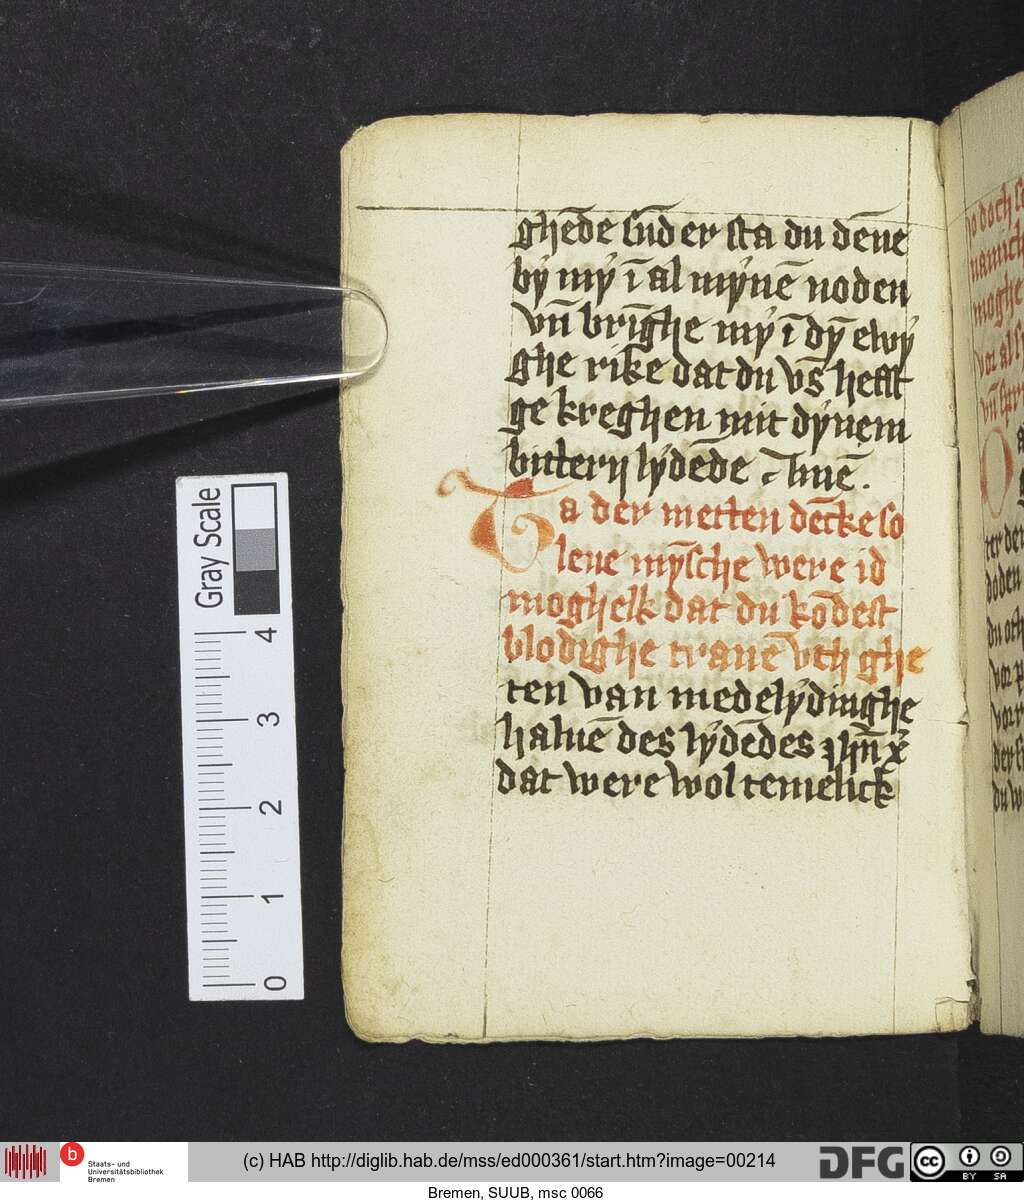 ghēde sūd er sta du dēne
bÿ mÿ ī al mÿnē noden
vn̄ brīghe mÿ ī dȳ ewÿ
ghe rike dat du vs̄ hefst
ge kreghen mit dÿnem
bittern lÿdēde
Ta der metten dēcke so
leue mȳsche were id
moghelk dat du kōdest
blodighe tranē vth ghe
ten van medelÿdinghe
haluē des lÿdēdes
dat were wol temelick
Gray Scale
4
3
2
1
0
b
Staats- und
Universitätsbibliothek
Bremen
(c) HAB http://diglib.hab.de/mss/ed000361/start.htm?image=00214
DFG
cc
BY SA
Bremen, SUUB, msc 0066